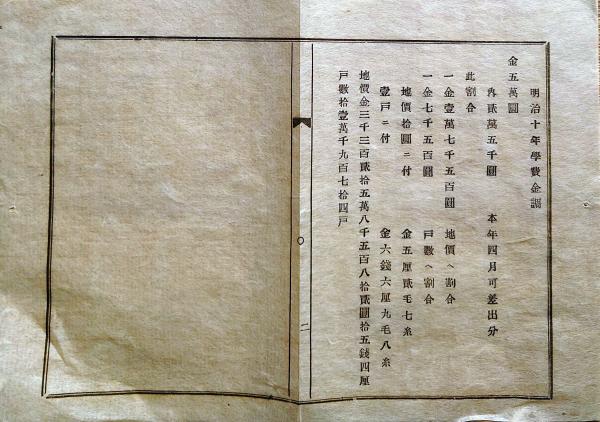 明治十年學費金調
金五萬圓
內貳萬五千圓 本年四月可差出分
此割合
一金壹萬七千五百圓 地價ヘ割合
一金七千五百圓 戸數ヘ割合
地價拾圓ニ付 金五厘貳毛七糸
壹戸ニ付 金六錢六厘九毛八糸
地價金三千三百貳拾五萬八千五百八拾貳圓拾五錢四厘
戸數拾壹萬千九百七拾四戸
二